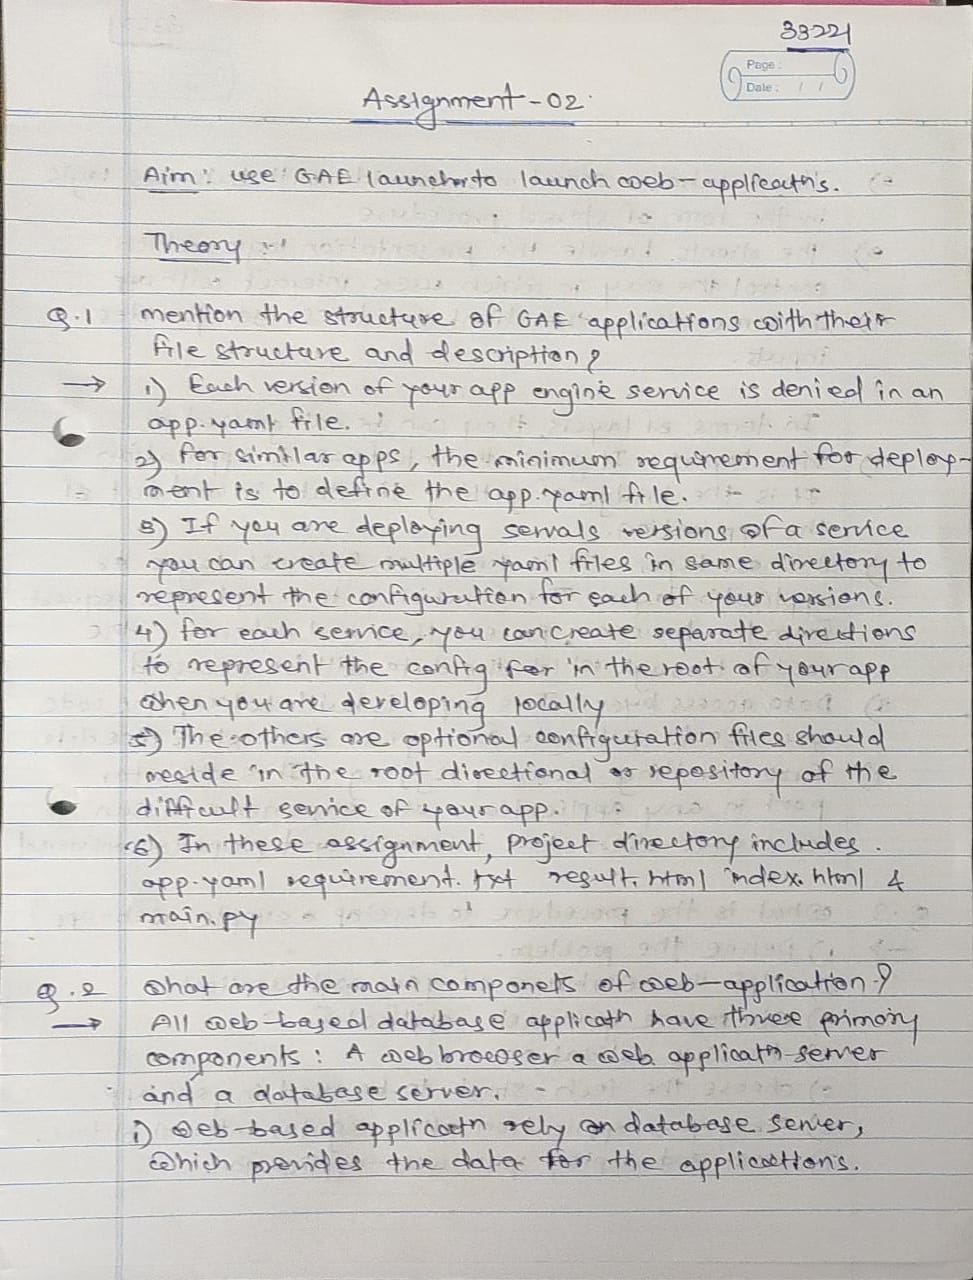 33221
Page :
Date : / /
Assignment - 02
Aim : use GAE launcher to launch web-applicatn's.
Theory :-
Q.1 mention the structure of GAE applications with their
file structure and description?
→ 1) Each version of your app engine service is denied in an
app.yaml file.
2) for similar apps, the minimum requirement for deploy-
ment is to define the app.yaml file.
3) If you are deploying servals versions of a service
you can create multiple yaml files in same directory to
represent the configuration for each of your versions.
4) for each service, you can create separate directions
to represent the config for in the root of your app
when you are developing locally
5) The others are optional configuration files should
reside in the root directional or repository of the
difficult service of your app.
6) In these assignment, project directory includes.
app.yaml requirement.txt result.html index.html &
main.py
Q.2 what are the main componets of web-application?
→ All web-based database applicatn have three primary
components : A web browser a web applicatn server
and a database server.
i) web-based applicatn rely on database server,
which provides the data for the applications.